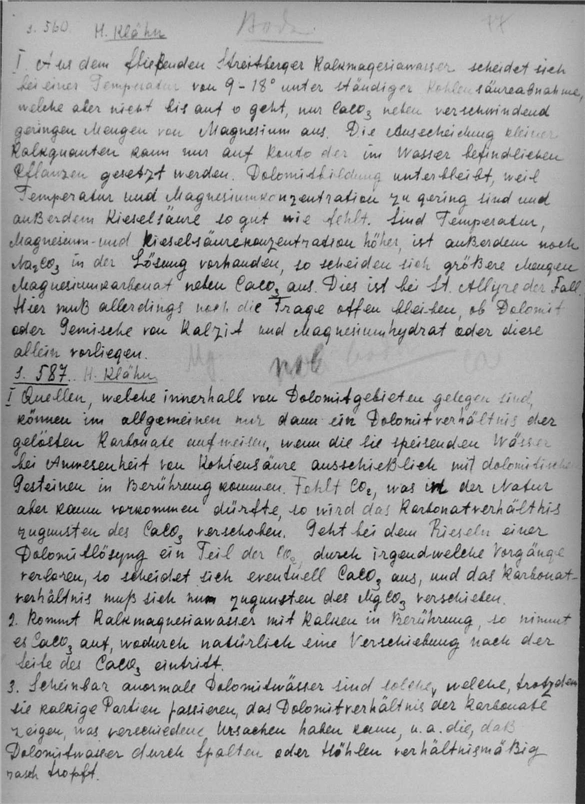 S. 560. H. Klähn 17
I. Aus dem fließenden Streitberger Kalkmagnesiawasser scheidet sich
bei einer Temperatur von 9-18° unter ständiger Kohlensäureabnahme,
welche aber nicht bis auf 0 geht, nur CaCO₃ neben verschwindend
geringen Mengen von Magnesium aus. Die Ausscheidung kleiner
Kalkquanten kann nur auf Konto der im Wasser befindlichen
Pflanzen gesetzt werden. Dolomitbildung unterbleibt, weil
Temperatur und Magnesiumkonzentration zu gering sind und
außerdem Kieselsäure so gut wie fehlt. Sind Temperatur,
Magnesium- und Kieselsäurekonzentration höher, ist außerdem noch
Na₂CO₃ in der Lösung vorhanden, so scheiden sich größere Mengen
Magnesiumkarbonat neben CaCO₃ aus. Dies ist bei St. Allyre der Fall.
Hier muß allerdings noch die Frage offen bleiben, ob Dolomit
oder Gemische von Kalzit und Magnesiumhydrat oder diese
allein vorliegen.
S. 587. H. Klähn
I Quellen, welche innerhalb von Dolomitgebieten gelegen sind,
können im allgemeinen nur dann ein Dolomitverhältnis der
gelösten Karbonate aufweisen, wenn die sie speisenden Wässer
bei Anwesenheit von Kohlensäure ausschießlich mit dolomitische
Gesteinen in Berührung kommen. Fehlt CO₂, was in der Natur
aber kaum vorkommen dürfte, so wird das Karbonatverhältnis
zugunsten des CaCO₃ verschoben. Geht bei dem Rieseln einer
Dolomitlösung ein Teil der CO₂, durch irgendwelche Vorgänge
verloren, so scheidet sich eventuell CaCO₃ aus, und das Karbonat-
verhältnis muß sich nun zugunsten des MgCO₃ verschieben.
2. Kommt Kalkmagnesiawasser mit Kalken in Berührung, so nimmt
es CaCO₃ auf, wodurch natürlich eine Verschiebung nach der
Seite des CaCO₃ eintritt.
3. Scheinbar anormale Dolomitwässer sind solche, welche, trotzdem
sie kalkige Partien passieren, das Dolomitverhältnis der Karbonate
zeigen, was verschiedene Ursachen haben kann, u. a. die, daß
Dolomitwasser durch Spalten oder Höhlen verhältnismäßig
rasch tropft.